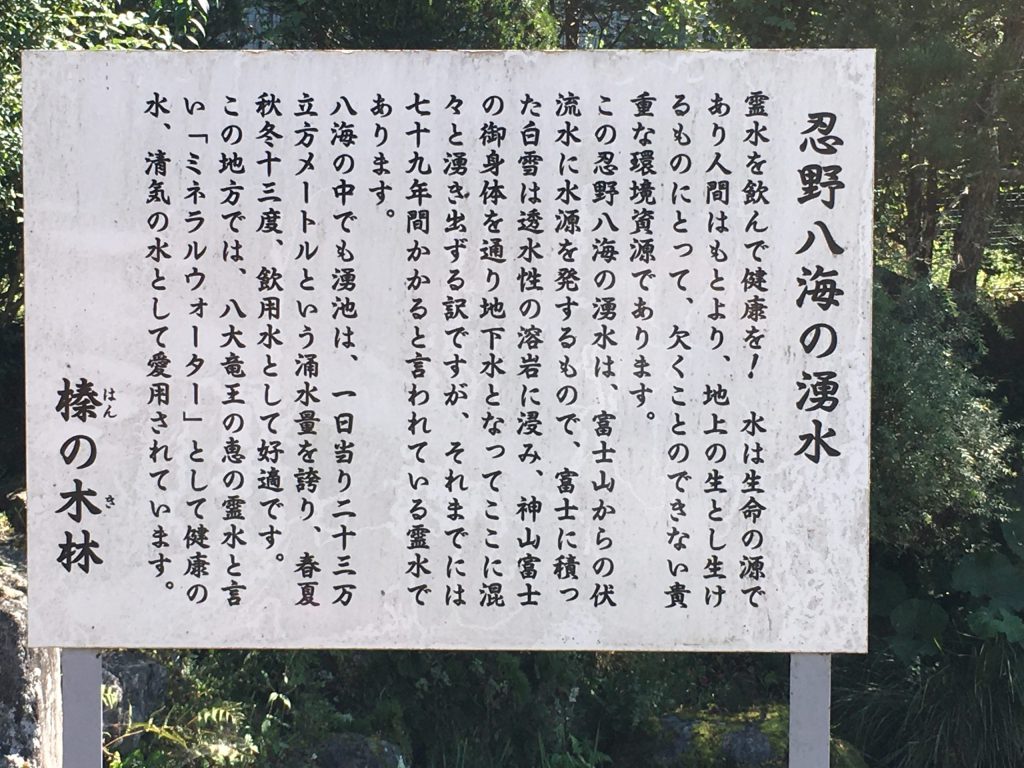 忍野八海の湧水
霊水を飲んで健康を！　水は生命の源で
あり人間はもとより、地上の生とし生け
るものにとって、欠くことのできない貴
重な環境資源であります。
この忍野八海の湧水は、富士山からの伏
流水に水源を発するもので、富士に積っ
た白雪は透水性の溶岩に浸み、神山富士
の御身体を通り地下水となってここに混
々と湧き出ずる訳ですが、それまでには
七十九年間かかると言われている霊水で
あります。
八海の中でも湧池は、一日当り二十三万
立方メートルという涌水量を誇り、春夏
秋冬十三度、飲用水として好適です。
この地方では、八大竜王の恵の霊水と言
い「ミネラルウォーター」として健康の
水、清気の水として愛用されています。
榛の木林
はん　き